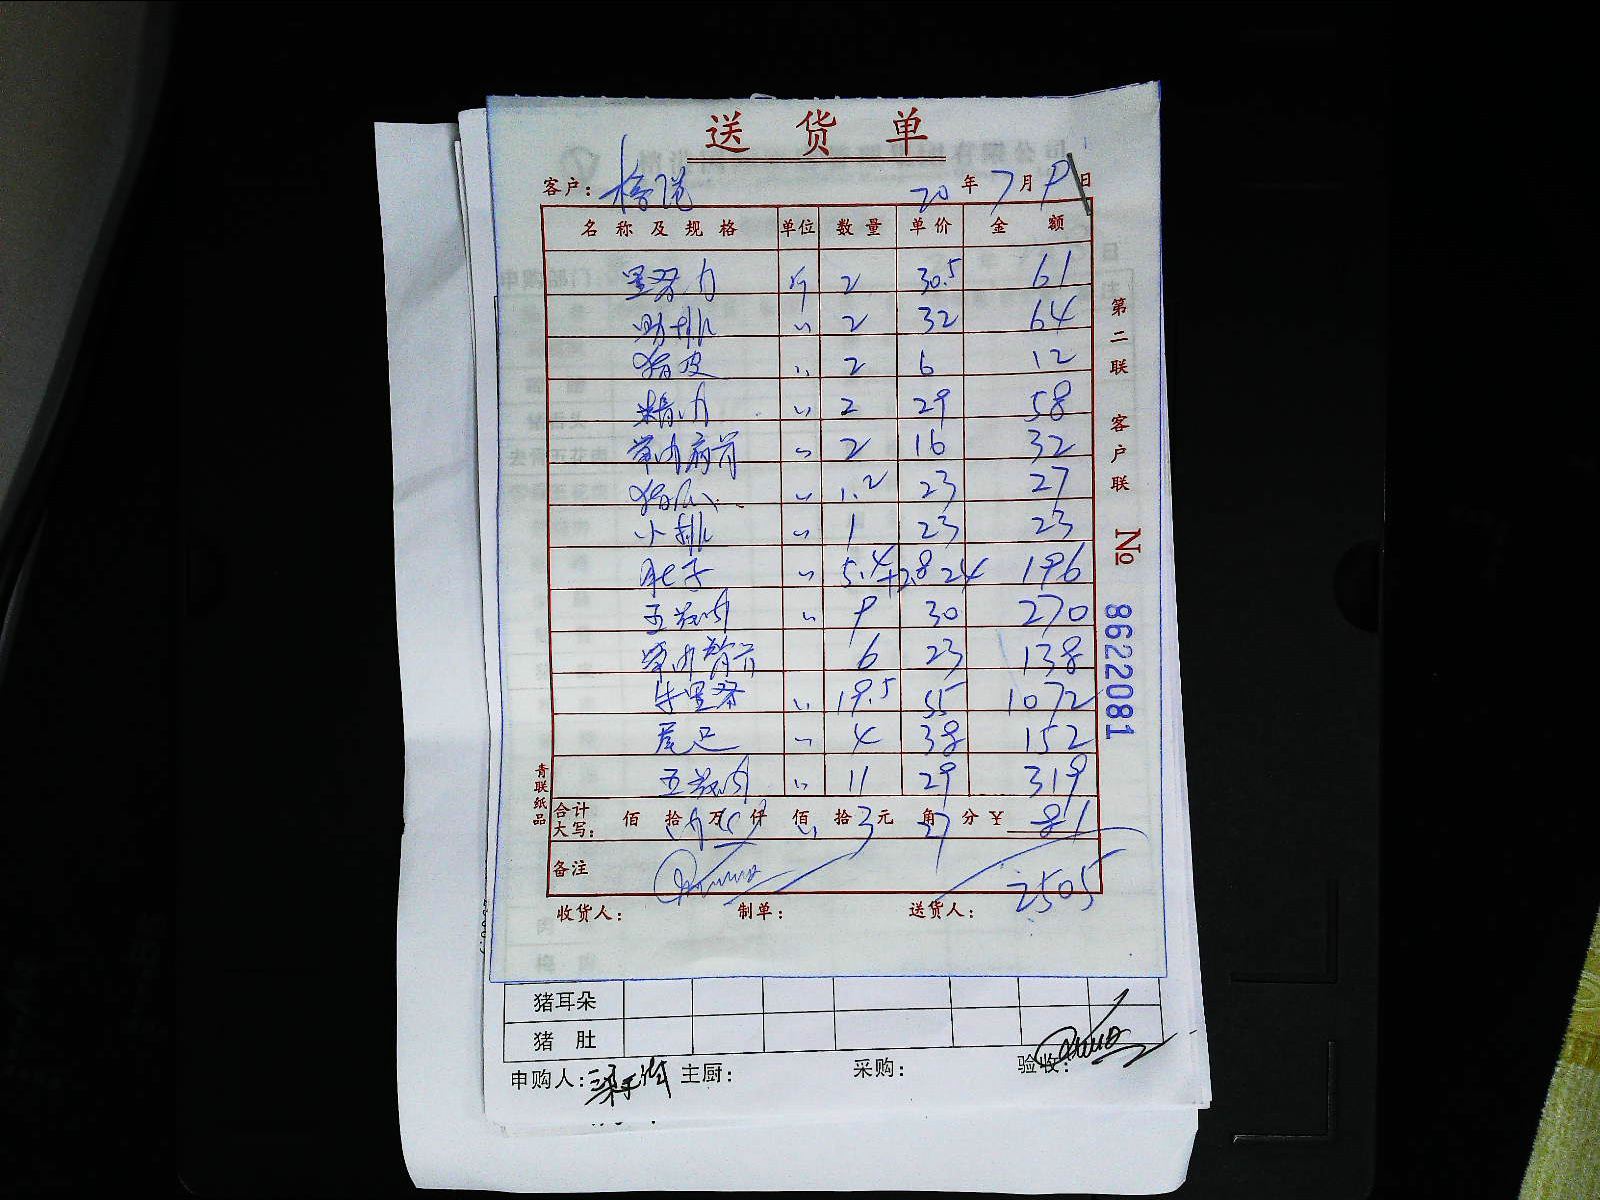 送货单
客户: 20年7月9日
名称及规格 单位 数量 单价 金额
里脊肉 斤 2 30.5 61
肋排 〃 2 32 64
猪皮 〃 2 6 12
精肉 〃 2 29 58
带肉 2 16 32
猪 〃 1.2 23 27
小排 〃 1 23 23
肚子 〃 5.4+2.8 24 196
五花肉 〃 9 30 270
带肉 6 23 138
牛里脊 〃 19.5 55 1072
尾 〃 4 38 152
五花肉 〃 11 29 319
合计大写: 佰 拾 万 仟 佰 拾 3 元 角 27 分 ¥ 81
备注 2505
收货人: 制单: 送货人:
第二联 客户联 No 8622081
青联纸品
猪耳朵
猪肚
申购人: 主厨: 采购: 验收: